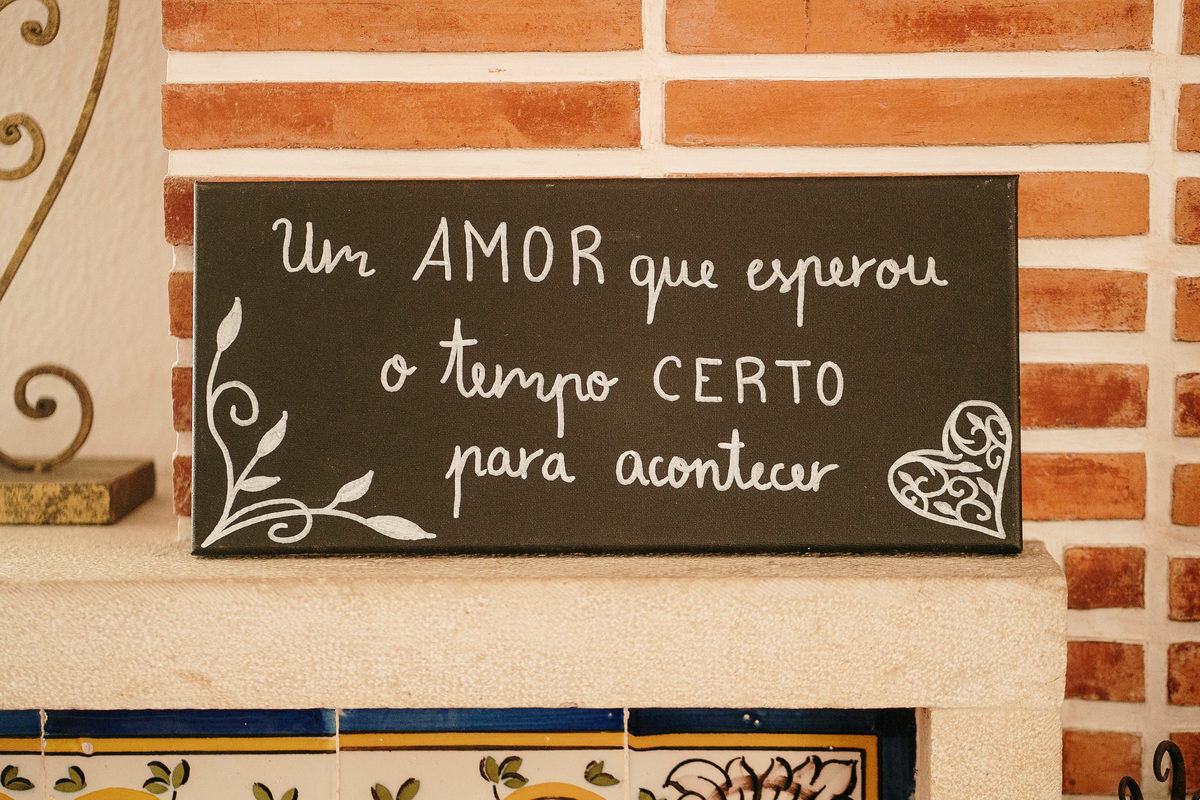 Um AMOR que esperou
o tempo CERTO
para acontecer